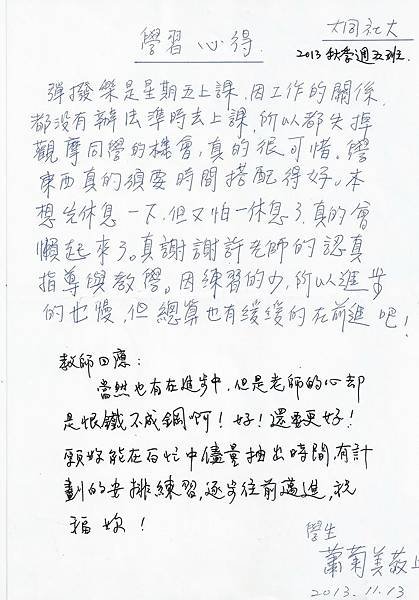 大同社大
學習心得.
2013 秋季週五班.
彈撥樂是星期五上課,因工作的關係,
都没有辦法準時去上課,所以都失掉
觀摩同學的機會,真的很可惜,學
東西真的須要時間搭配得好。本
想先休息一下,但又怕一休息了,真的會
懶起來了。真謝謝許老師的認真
指導與教學。因練習的少,所以進步
的也慢,但總算也有緩緩的在前進吧!
教師回應:
當然也有在進步中,但是老師的心却
是恨鐵不成鋼啊!好!還要更好!
願妳能在百忙中儘量抽出時間,有計
劃的安排練習,逐步往前邁進,祝
福妳!
學生
蕭菊美敬上
2013.11.13